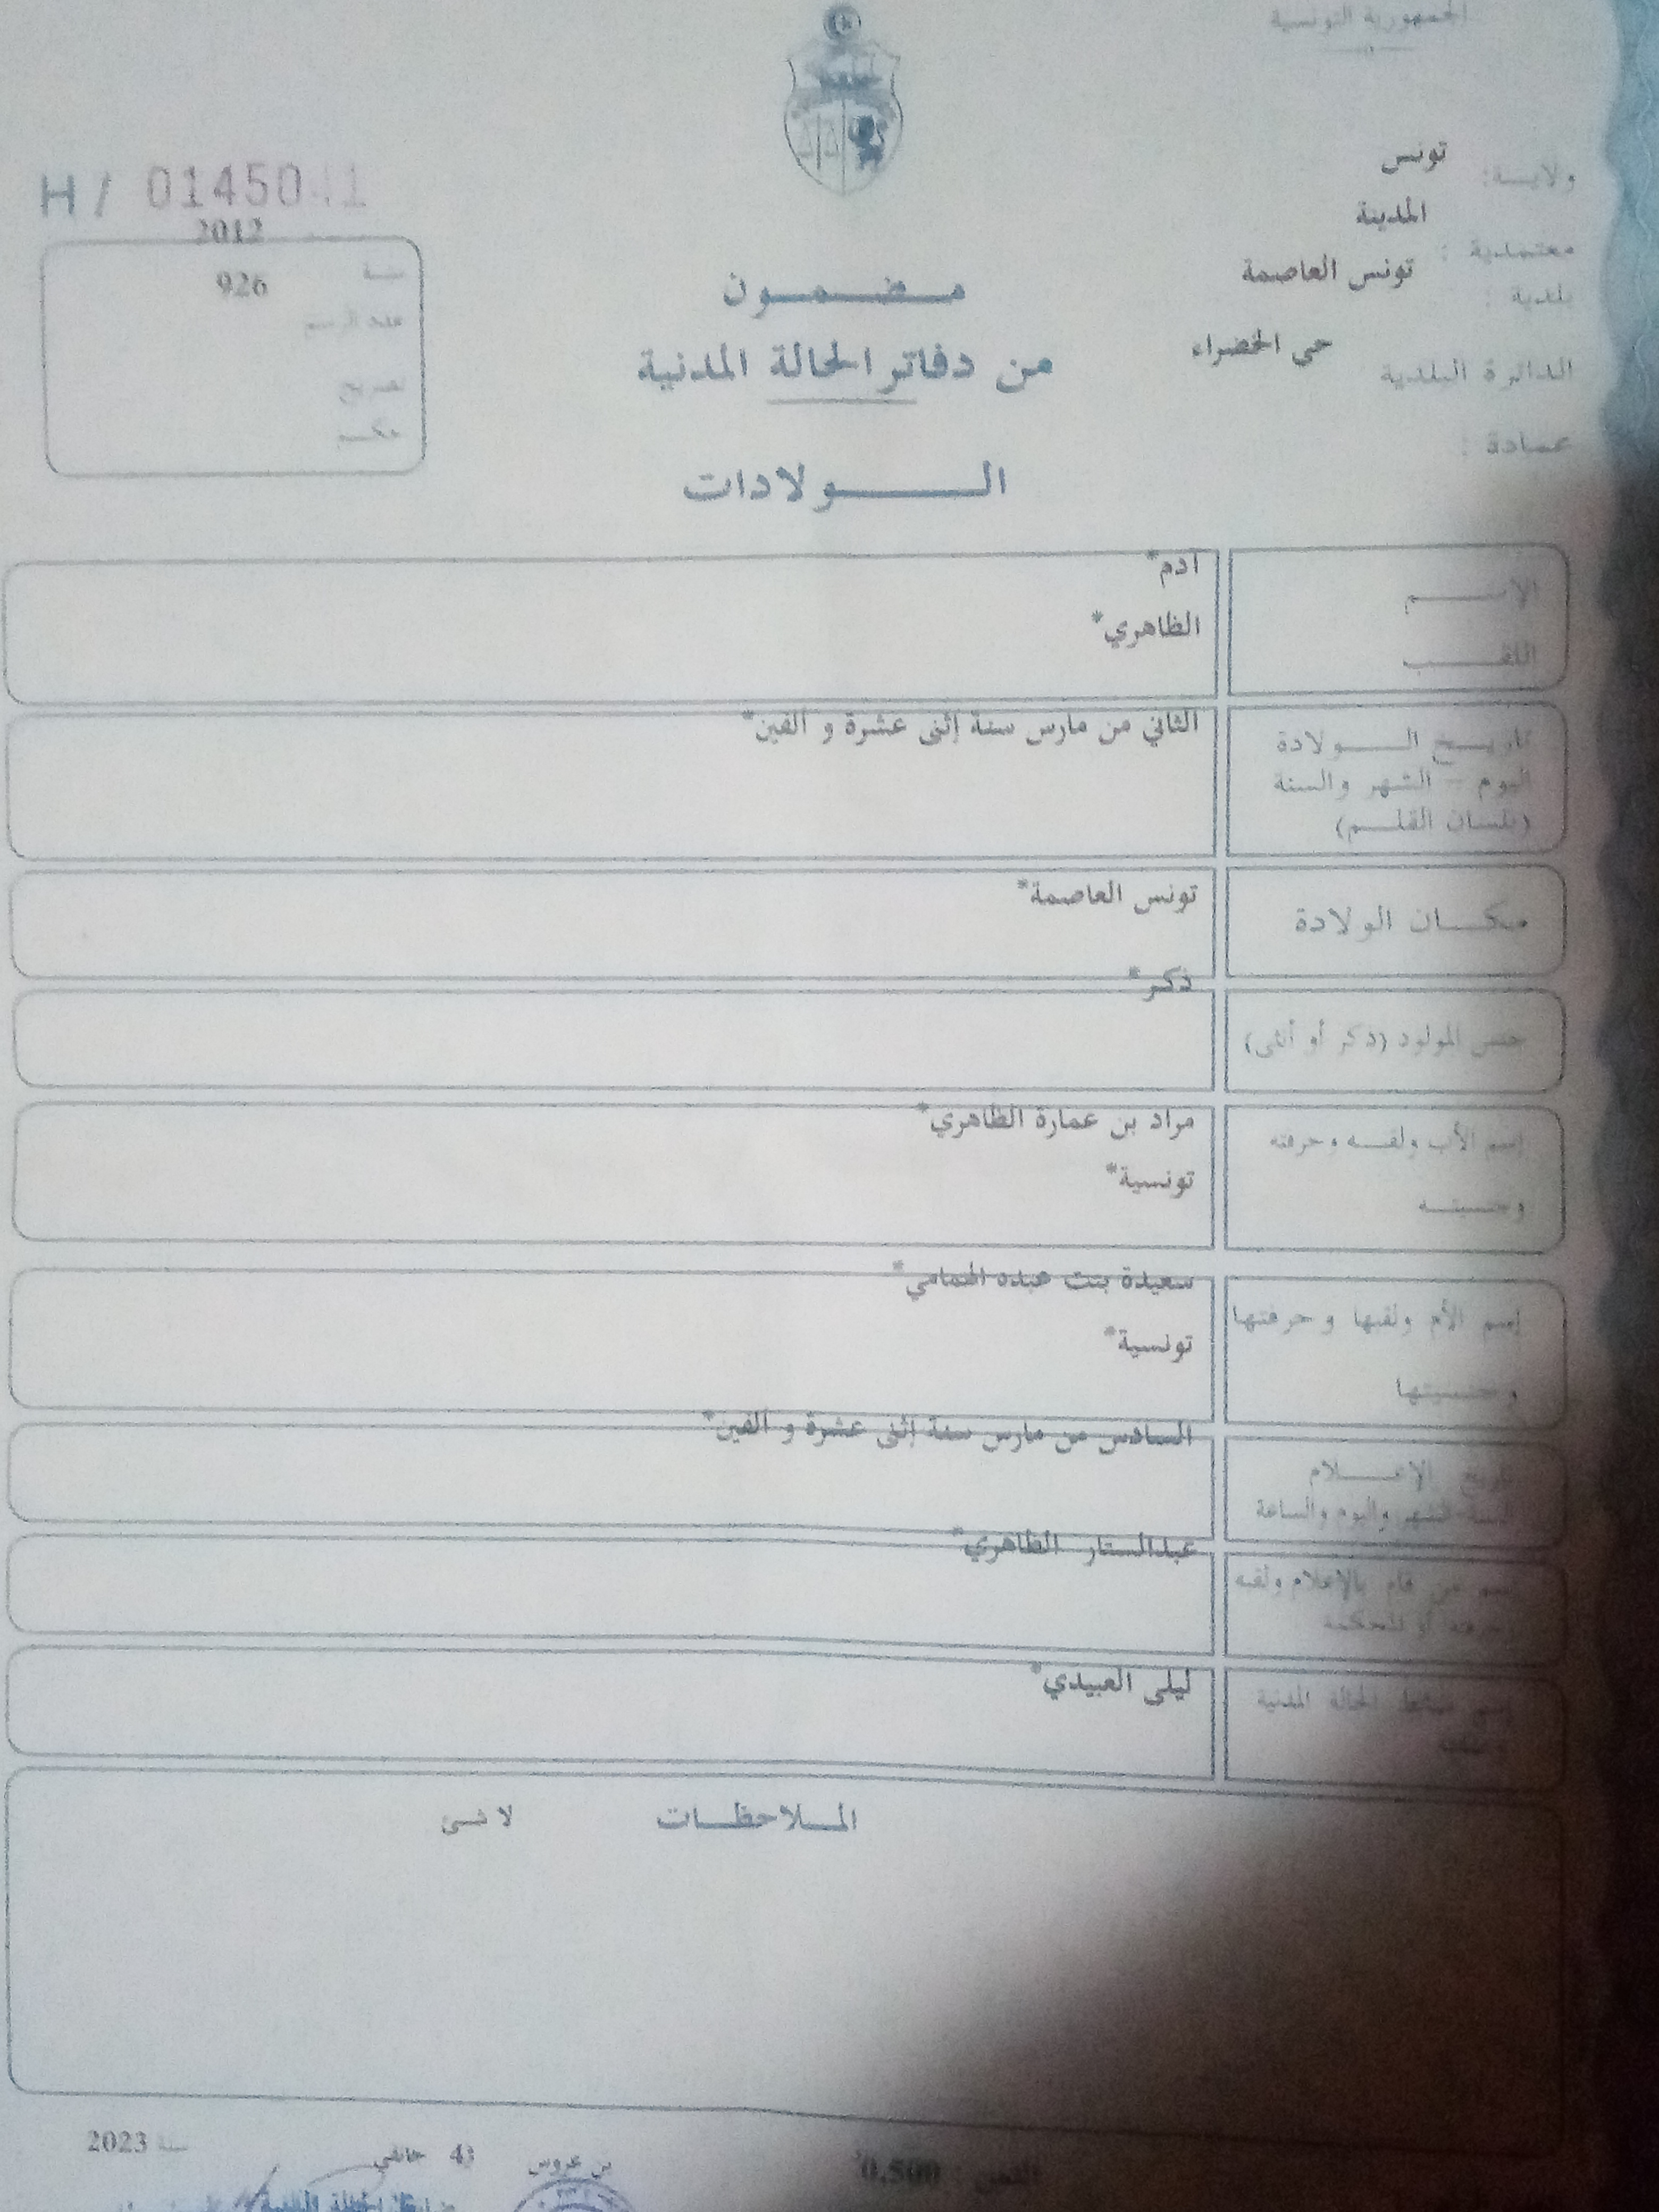 الجمهورية التونسية
ولايــة: تونس
معتمدية : المدينة
بلدية : تونس العاصمة
الدائرة البلدية حي الخضراء
عمادة :
H / 01450
2012
سنة
926
عدد الرسم
تصريح
حكم
مضمون
من دفاتر الحالة المدنية
الولادات
الإسم ادم*
اللقب الظاهري*
تاريخ الولادة الثاني من مارس سنة إثنى عشرة و الفين*
اليوم - الشهر والسنة
(بلسان القلم)
مكان الولادة تونس العاصمة*
جنس المولود (ذكر أو أنثى) ذكر*
إسم الأب ولقبه وحرفته مراد بن عمارة الظاهري*
وجنسيته تونسية*
إسم الأم ولقبها وحرفتها سعيدة بنت عبده الهمامي*
وجنسيتها تونسية*
تاريخ الإعلام السادس من مارس سنة إثنى عشرة و الفين*
السنة الشهر واليوم والساعة
إسم من قام بالإعلام ولقبه عبدالستار الظاهري*
وحرفته أو المحكمة
إسم ضابط الحالة المدنية ليلى العبيدي*
الملاحظات لا شئ
بن عروس جانفي سنة 2023
0.500